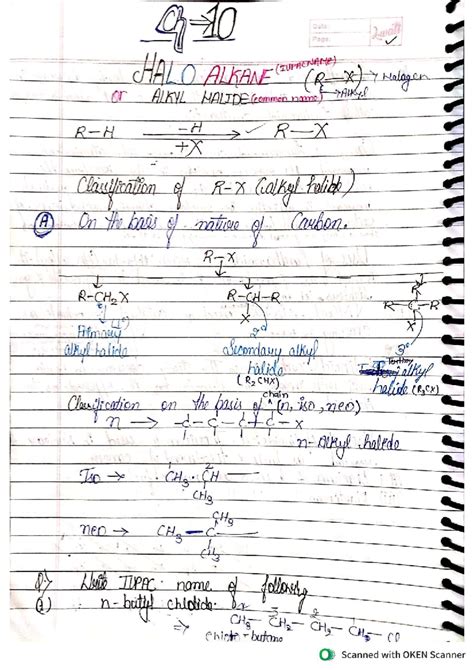 Ch-10
Date:
Page:
HALO ALKANE (IUPAC NAME) (R-X) → Halogen
or ALKYL HALIDE (common name) → Alkyl
R-H -H +X → R-X
Classification of R-X (alkyl halide)
(A) On the basis of nature of Carbon.
R-X
R-CH2X R-CH-R R-C-R
X X
(1°) 2° 3°
Primary alkyl halide
Secondary alkyl halide (R2CHX)
Tertiary alkyl halide (R3CX)
Classification on the basis of chain (n, iso, neo)
n → -C-C-C-C-X
n-Alkyl halide
Iso → CH3-CH-
CH3
CH3
neo → CH3-C-
CH3
Q:- Write IUPAC name of following
n-butyl chloride. CH3-CH2-CH2-CH2-Cl
→ chloro-butane
Scanned with OKEN Scanner